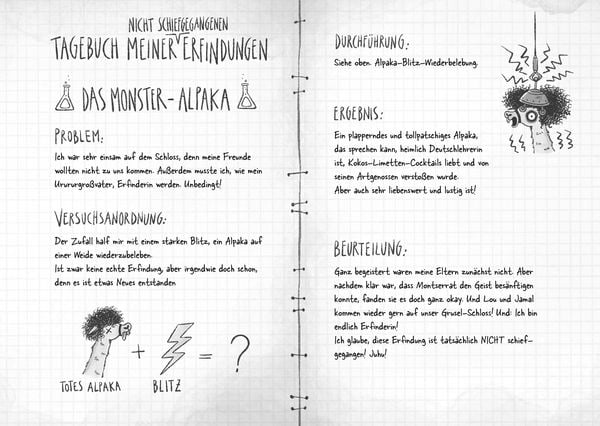 NICHT SCHIEFGEGANGENEN
TAGEBUCH MEINER ERFINDUNGEN
DAS MONSTER-ALPAKA
PROBLEM:
Ich war sehr einsam auf dem Schloss, denn meine Freunde
wollten nicht zu uns kommen. Außerdem musste ich, wie mein
Urururgroßvater, Erfinderin werden. Unbedingt!
VERSUCHSANORDNUNG:
Der Zufall half mir mit einem starken Blitz, ein Alpaka auf
einer Weide wiederzubeleben.
Ist zwar keine echte Erfindung, aber irgendwie doch schon,
denn es ist etwas Neues entstanden
+
=
?
TOTES ALPAKA
BLITZ
DURCHFÜHRUNG:
Siehe oben. Alpaka-Blitz-Wiederbelebung.
ERGEBNIS:
Ein plapperndes und tollpatschiges Alpaka,
das sprechen kann, heimlich Deutschlehrerin
ist, Kokos-Limetten-Cocktails liebt und von
seinen Artgenossen verstoßen wurde.
Aber auch sehr liebenswert und lustig ist!
BEURTEILUNG:
Ganz begeistert waren meine Eltern zunächst nicht. Aber
nachdem klar war, dass Montserrat den Geist besänftigen
konnte, fanden sie es doch ganz okay. Und Lou und Jamal
kommen wieder gern auf unser Grusel-Schloss! Und: Ich bin
endlich Erfinderin!
Ich glaube, diese Erfindung ist tatsächlich NICHT schief-
gegangen! Juhu!